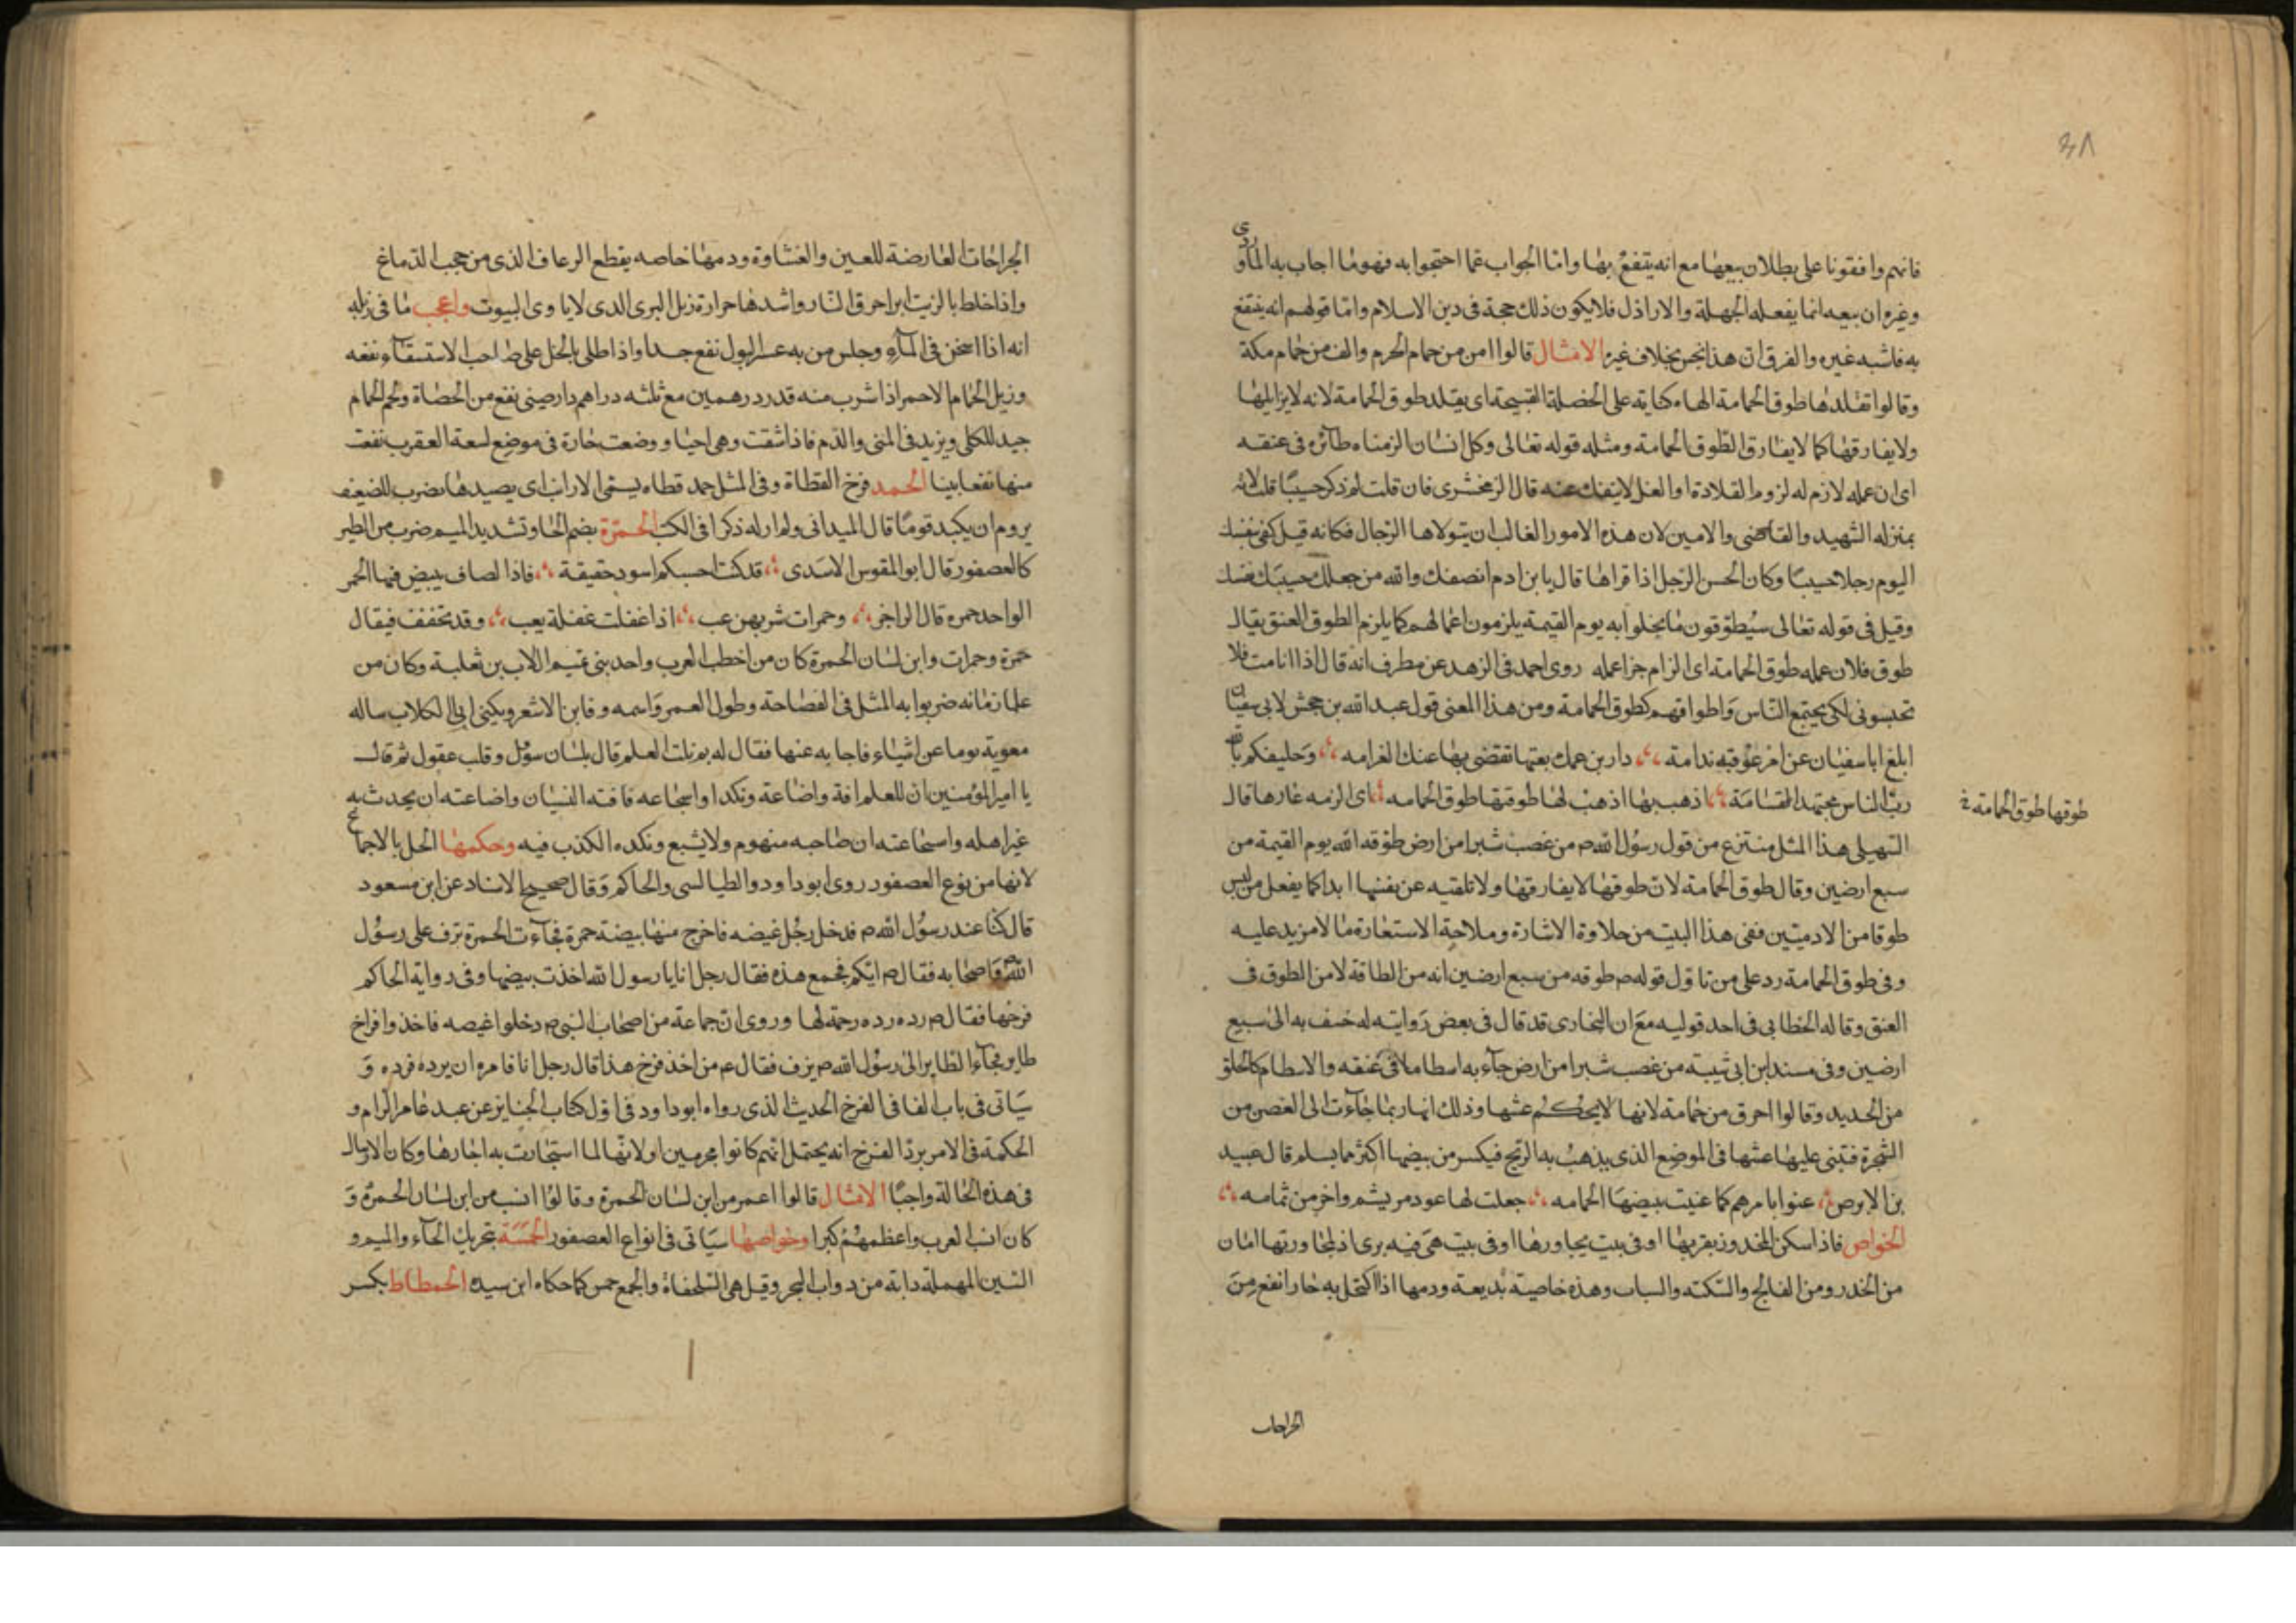 ٣٨
فانهم وافقونا على بطلان بيعها مع انه ينتفع بها واما الجواب عما احتجوا به فهو ما اجاب به الماوردى
وغيره ان بيعه انما يفعله الجهلة والاراذل فلا يكون ذلك حجة فى دين الاسلام واما قولهم انه ينتفع
به فاشبه غيره والفرق ان هذا نجس بخلاف غيره الامثال قالوا امن من حمام الحرم والف من حمام مكة
وقالوا تقلدها طوق الحمامة الهاء كناية على الخصلة القبيحة اى يقلد طوق الحمامة لانه لا يزايلها
ولا يفارقها كما لا يفارق الطوق الحمامة ومثله قوله تعالى وكل انسان الزمناه طائره فى عنقه
اى ان عمله لازم له لزوم القلادة او الغل لا ينفك عنه قال الزمخشرى فان قلت لم ذكر حسيبا قلت لانه
بمنزله الشهيد والقاضى والامين لان هذه الامور الغالب ان يتولاها الرجال فكانه قيل كفى بنفسك
اليوم رجلا حسيبا وكان الحسن الرجل اذا قراها قال يا بن ادم انصفك والله من جعلك حسيب نفسك
وقيل فى قوله تعالى سيطوقون ما بخلوا به يوم القيمة يلزمون اعمالهم كما يلزم الطوق العنق يقال
طوق فلان عمله طوق الحمامة اى الزام جزا عمله روى احمد فى الزهد عن مطرف انه قال اذا انا مت فلا
تحبسونى لكى يجتمع الناس واطواقهم كطوق الحمامة ومن هذا المعنى قول عبد الله بن جحش لابى سفيان
ابلغ ابا سفيان عن امر عوقبه ندامة دار بن عمك بعتها تقضى بها عنك الغرامه وحليفكم بالله
رب الناس مجتهد القسامة اذهب بها اذهب لها طوقتها طوق الحمامه اى الزمه عارها قال
طوقها طوق الحمامة
السهيلى هذا المثل منتزع من قول رسول الله م من غصب شبرا من ارض طوقه الله يوم القيمة من
سبع ارضين وقال طوق الحمامة لان طوقها لا يفارقها ولا تلقيه عن نفسها ابدا كما يفعل من لبس
طوقا من الادميين ففى هذا البيت من حلاوة الاشارة وملاحة الاستعارة ما لا مزيد عليه
وفى طوق الحمامة رد على من تاول قوله م طوقه من سبع ارضين انه من الطاقة لا من الطوق فى
العنق وقاله الخطابى فى احد قوليه مع ان البخارى قد قال فى بعض رواياته له خسف به الى سبع
ارضين وفى مسند ابن ابى شيبة من غصب شبرا من ارض جاء به اسطاما فى عنقه والاسطام كالحلق
من الحديد وقالوا احرق من حمامة لانها لا يحكم عشها وذلك انها ربما جاءت الى الغصن من
الشجرة فتبنى عليها عشها فى الموضع الذى يذهب به الريح فيكسر من بيضها اكثر مما يسلم قال عبيد
بن الابرص عنوا بامرهم كما عنيت ببيضها الحمامه جعلت لها عود من يشم واخر من ثمامه
الخواص فاذا سكن المخدور بقربها او فى بيت يجاورها او فى بيت هى فيه برى اذ لمجاورتها امان
من الخدر ومن الفالج والسكته والسبات وهذه خاصية بديعة ودمها اذا اكتحل به حارا نفع من
الجراحات
الجراحات العارضة للعين والغشاوة ودمها خاصه يقطع الرعاف الذى من حجب الدماغ
واذا خلط بالزيت ابرا حرق النار واشدها حرارة زبل البرى الدى لا ياوى البيوت واعجب ما فى زبله
انه اذا اسخن فى الماء وجلس من به عسر البول نفع جدا واذا طلى بالخل على صاحب الاستسقاء نفعه
وزبل الحمام الاحمر اذا شرب منه قدر درهمين مع ثلثه دراهم دارصينى نفع من الحصاة ولحم الحمام
جيد للكلى ويزيد فى المنى والدم فاذا شقت وهى احيا ووضعت حارة فى موضع لسعة العقرب نفعت
منها نفعا بينا الحمد فرخ القطاة وفى المثل حمد قطاه يستمى الارانب اى يصيدها يضرب للضعيف
يروم ان يكيد قوما قال الميدانى ولم ار له ذكرا فى الكتب الحمرة بضم الحا وتشديد الميم ضرب من الطير
كالعصفور قال ابو المقوس الاسدى قد كنت احسبكم اسود حقيقة فاذا لصاف يبيض فيها الحمر
الواحد حمره قال الراجز وحمرات شربهن عب اذا غفلت غفلة يعب وقد تخفف فيقال
حمرة وحمرات وابن لسان الحمرة كان من اخطب العرب واحد بنى تميم اللات بن ثعلبة وكان من
علما زمانه ضربوا به المثل فى الفصاحة وطول العمر واسمه وفا بن الاشعر ويكنى ابى الكلاب ساله
معوية يوما عن اشياء فاجابه عنها فقال له بم نلت العلم قال بلسان سؤل وقلب عقول ثم قال
يا امير المؤمنين ان للعلم افة واضاعة ونكدا واسجاعه فافته النسيان واضاعته ان يحدث به
غير اهله واسجاعته ان صاحبه منهوم ولا يشبع ونكده الكذب فيه وحكمها الحل بالاجماع
لانها من نوع العصفور روى ابو داود والطيالسى والحاكم وقال صحيح الاسناد عن ابن مسعود
قال كنا عند رسول الله م فدخل رجل غيضه فاخرج منها بيضة حمرة فجاءت الحمرة ترف على رسول
الله واصحابه فقال م ايكم فجمع هذه فقال رجل انا يا رسول الله اخذت بيضها وفى رواية الحاكم
فرخها فقال م رده رده رحمة لها وروى ان جماعة من اصحاب النبى م دخلوا غيصه فاخذوا فراخ
طاير فجاء الطاير الى رسول الله م يزف فقال م من اخذ فرخ هذا قال رجل انا فامره ان يرده فرده و
سياتى فى باب الفا فى الفرخ الحديث الذى رواه ابو داود فى اول كتاب الجنايز عن عبد عامر الرام و
الحكمة فى الامر برد الفرخ انه يحتمل انهم كانوا محرمين او لانها لما استجارت به اجارها وكان الارسال
فى هذه الحالة واجبا الامثال قالوا اعمر من ابن لسان الحمرة وقالوا انسب من ابن لسان الحمرة و
كان انسب العرب واعظمهم كبرا وخواصها سياتى فى انواع العصفور الحمسة بتحريك الحاء والميم و
السين المهملة دابة من دواب البحر وقيل هى السلحفاة والجمع حمس كما حكاه ابن سيده الحمطاط بكسر